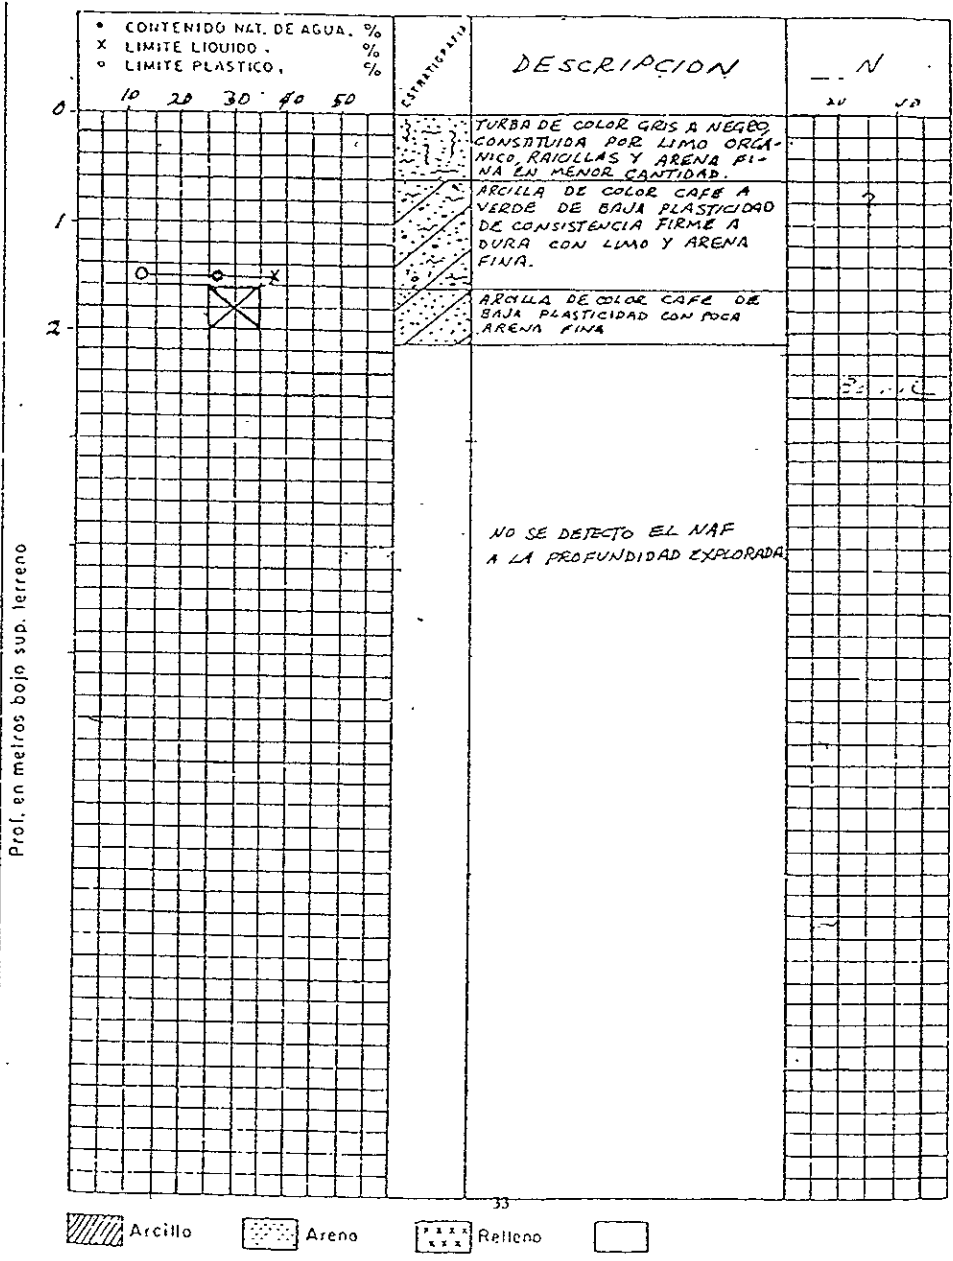 • CONTENIDO NAT. DE AGUA. %
x LIMITE LIQUIDO. %
o LIMITE PLASTICO. %
ESTRATIGRAFIA
DESCRIPCION
N
10 20 30 40 50
20
0
TURBA DE COLOR GRIS A NEGRO,
CONSTITUIDA POR LIMO ORGA-
NICO, RAICILLAS Y ARENA FI-
NA EN MENOR CANTIDAD.
ARCILLA DE COLOR CAFE A
VERDE DE BAJA PLASTICIDAD
DE CONSISTENCIA FIRME A
DURA CON LIMO Y ARENA
FINA.
?
1
ARCILLA DE COLOR CAFE DE
BAJA PLASTICIDAD CON POCA
ARENA FINA
2
NO SE DETECTO EL NAF
A LA PROFUNDIDAD EXPLORADA
Prof. en metros bajo sup. terreno
33
Arcillo
Areno
Relleno